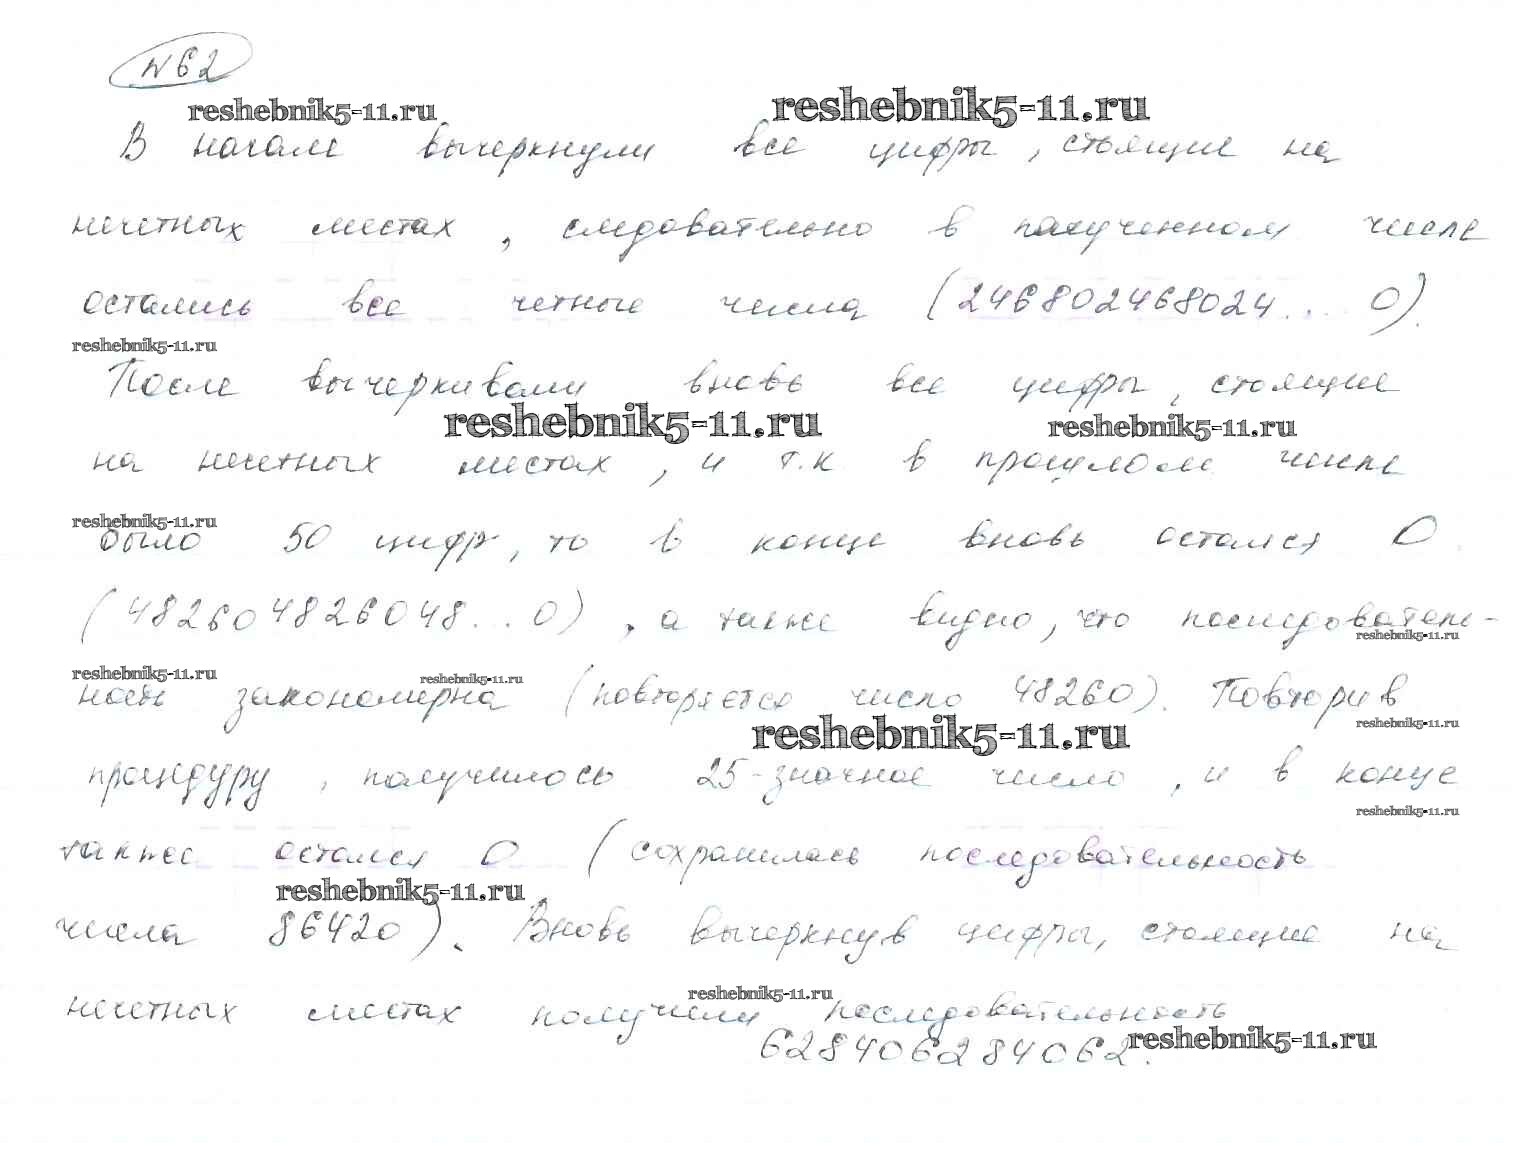 №62
reshebnik5-11.ru reshebnik5-11.ru
В начале вычеркнули все цифры, стоящие на
нечетных местах, следовательно в полученном числе
остались все четные числа (246802468024... 0).
reshebnik5-11.ru
После вычеркивами вновь все цифры, стоящие
reshebnik5-11.ru reshebnik5-11.ru
на нечетных местах, и т.к в прошлом числе
reshebnik5-11.ru
было 50 цифр, то в конце вновь остался 0
(482604826048...0), а также видно, что последователь-
reshebnik5-11.ru
reshebnik5-11.ru reshebnik5-11.ru
ность закономерна (повторяется число 48260). Повторив
reshebnik5-11.ru reshebnik5-11.ru
процедуру, получилось 25-значное число, и в конце
reshebnik5-11.ru
также остался 0 (сохранилась последовательность
reshebnik5-11.ru
числа 86420). Вновь вычеркнув цифры, стоящие на
reshebnik5-11.ru
нечетных местах получили последовательность
628406284062. reshebnik5-11.ru